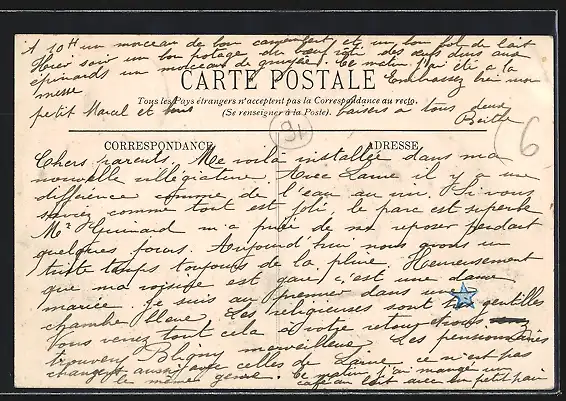 A 10 H un morceau de bon camembert et un bon bol de lait
Hier soir un bon potage du bœuf rôti des œufs durs aux
épinards un morceau de gruyère. Ce matin j'ai été à la
messe
CARTE POSTALE
Embrassez bien mon
Tous les Pays étrangers n'acceptent pas la Correspondance au recto.
petit Marcel et baisers à tous deux
(Se renseigner à la Poste).
Berthe
91
6
CORRESPONDANCE
ADRESSE
Chers parents, Me voilà installée dans ma
nouvelle villégiature. Avec Laine il y a une
différence comme de l'eau au vin. Si vous
saviez comme tout est joli le parc est superbe
Mr Guinard m'a priée de me reposer pendant
quelques jours. Aujourd'hui nous avons un
triste temps toujours de la pluie. Heureusement
que ma voisine est gaie c'est une dame
mariée. Je suis au premier dans une
chambre bleue. Les religieuses sont gentilles
Vous verrez tout cela à votre retour et vous
trouverez Bligny merveilleux. Les pensionnaires
changent aussi avec celles de Laine ce n'est pas
le même genre. Ce matin j'ai mangé un
café au lait avec un petit pain